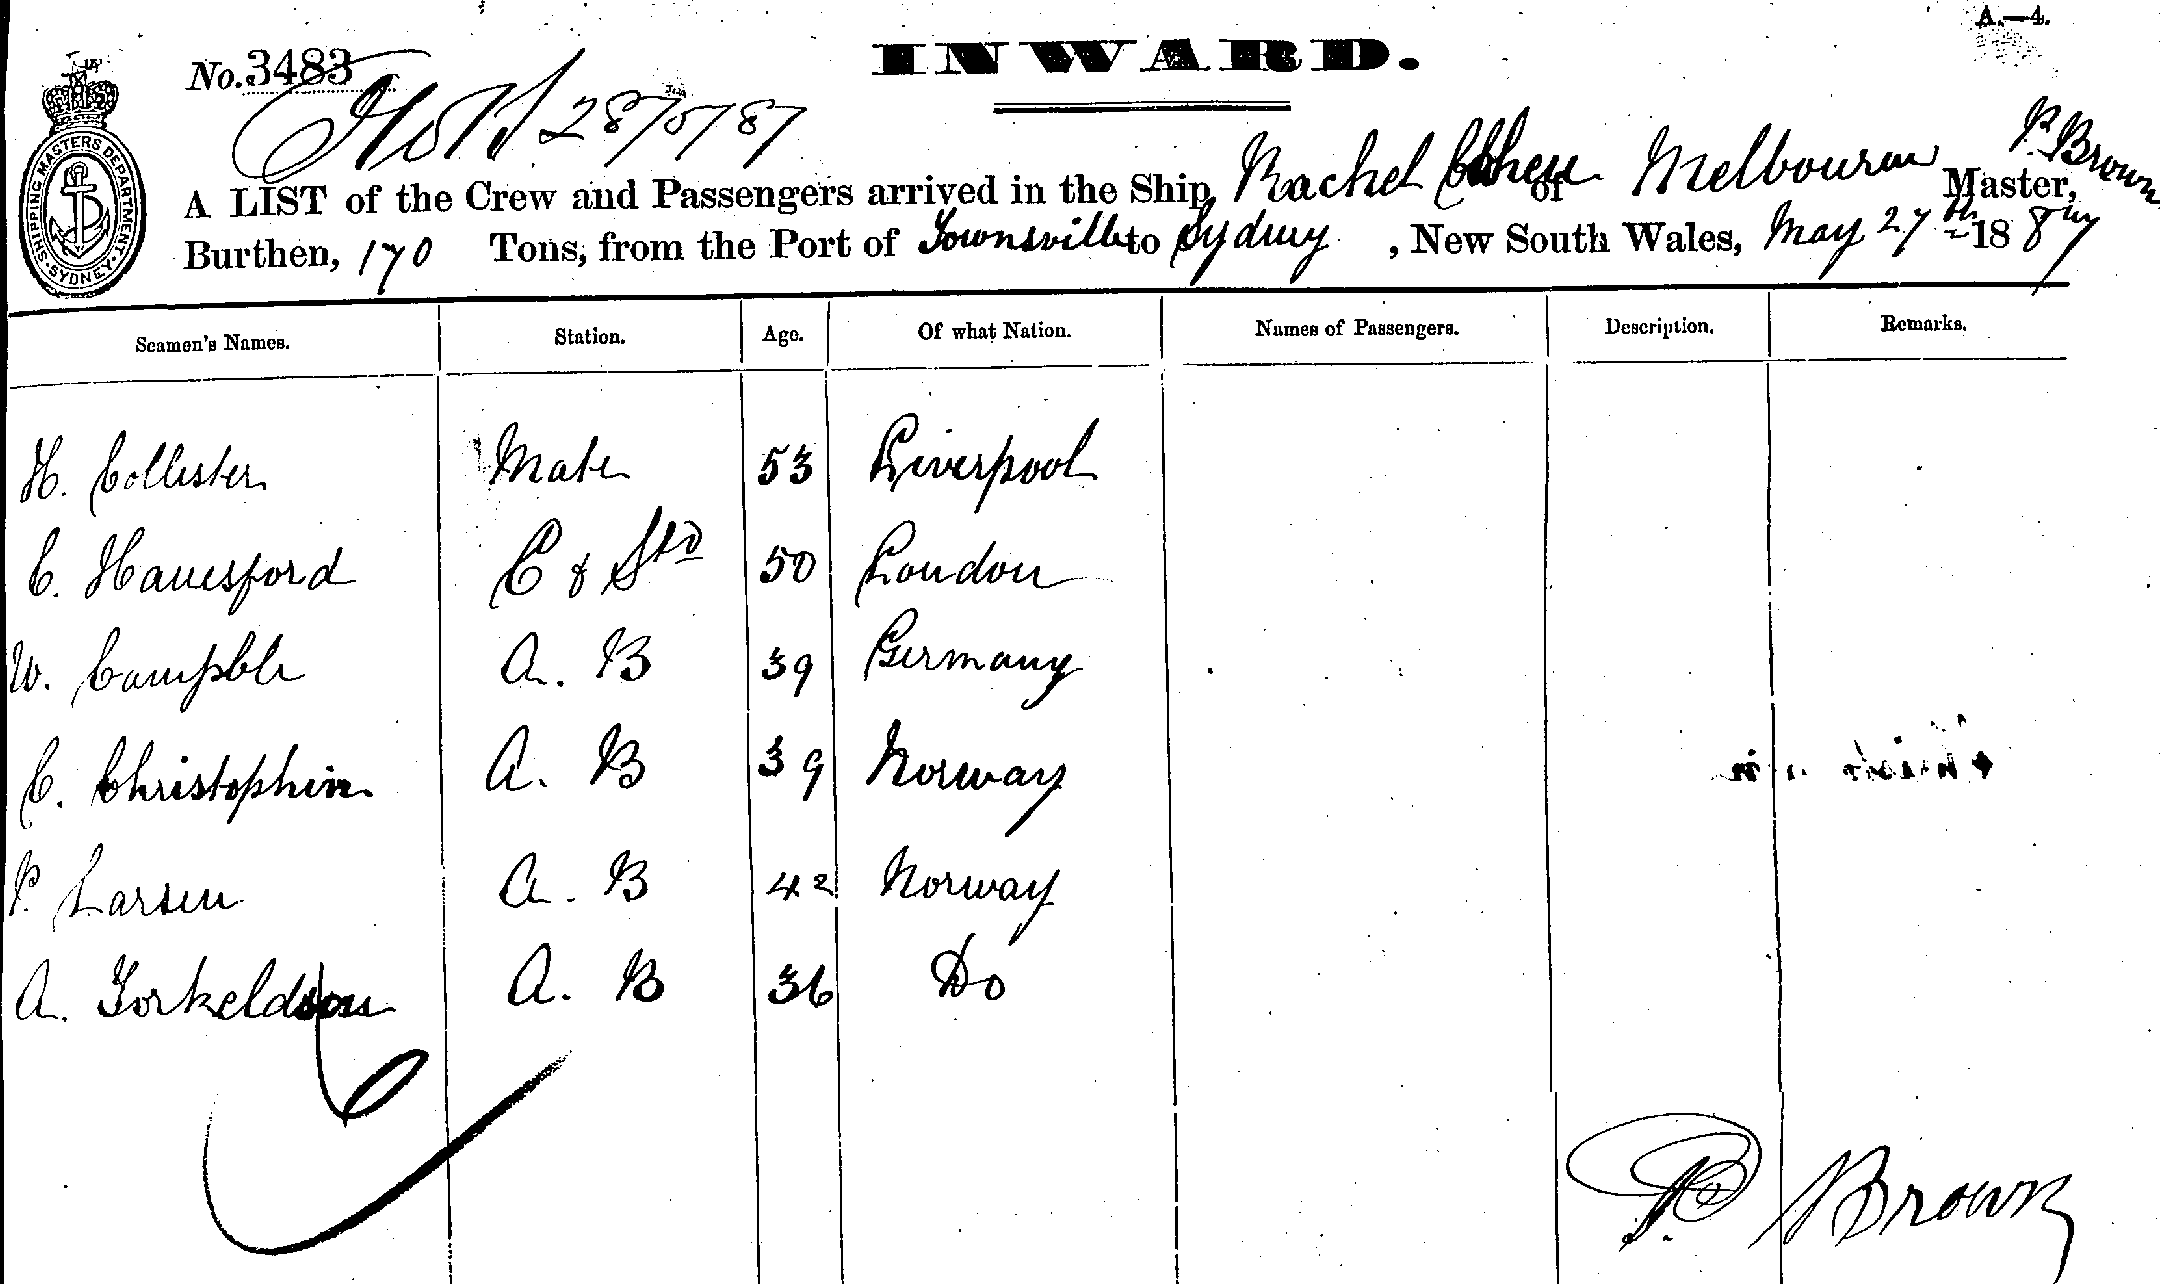 A.—4.
INWARD.
No. 3483
28/5/87
SHIPPING MASTERS DEPARTMENT. SYDNEY.
P. Brown
A LIST of the Crew and Passengers arrived in the Ship Rachel Cohen of Melbourne Master,
Burthen, 170 Tons, from the Port of Townsville to Sydney, New South Wales, May 27th 1887
Seamen's Names. Station. Age. Of what Nation. Names of Passengers. Description. Remarks.
H. Collister Mate 53 Liverpool
C. Hanesford C & Std 50 London
W. Campble A. B 39 Germany
C. Christophin A. B 39 Norway
P. Larsen A. B 42 Norway
A. Torkeldson A. B 36 Do
P. Brown